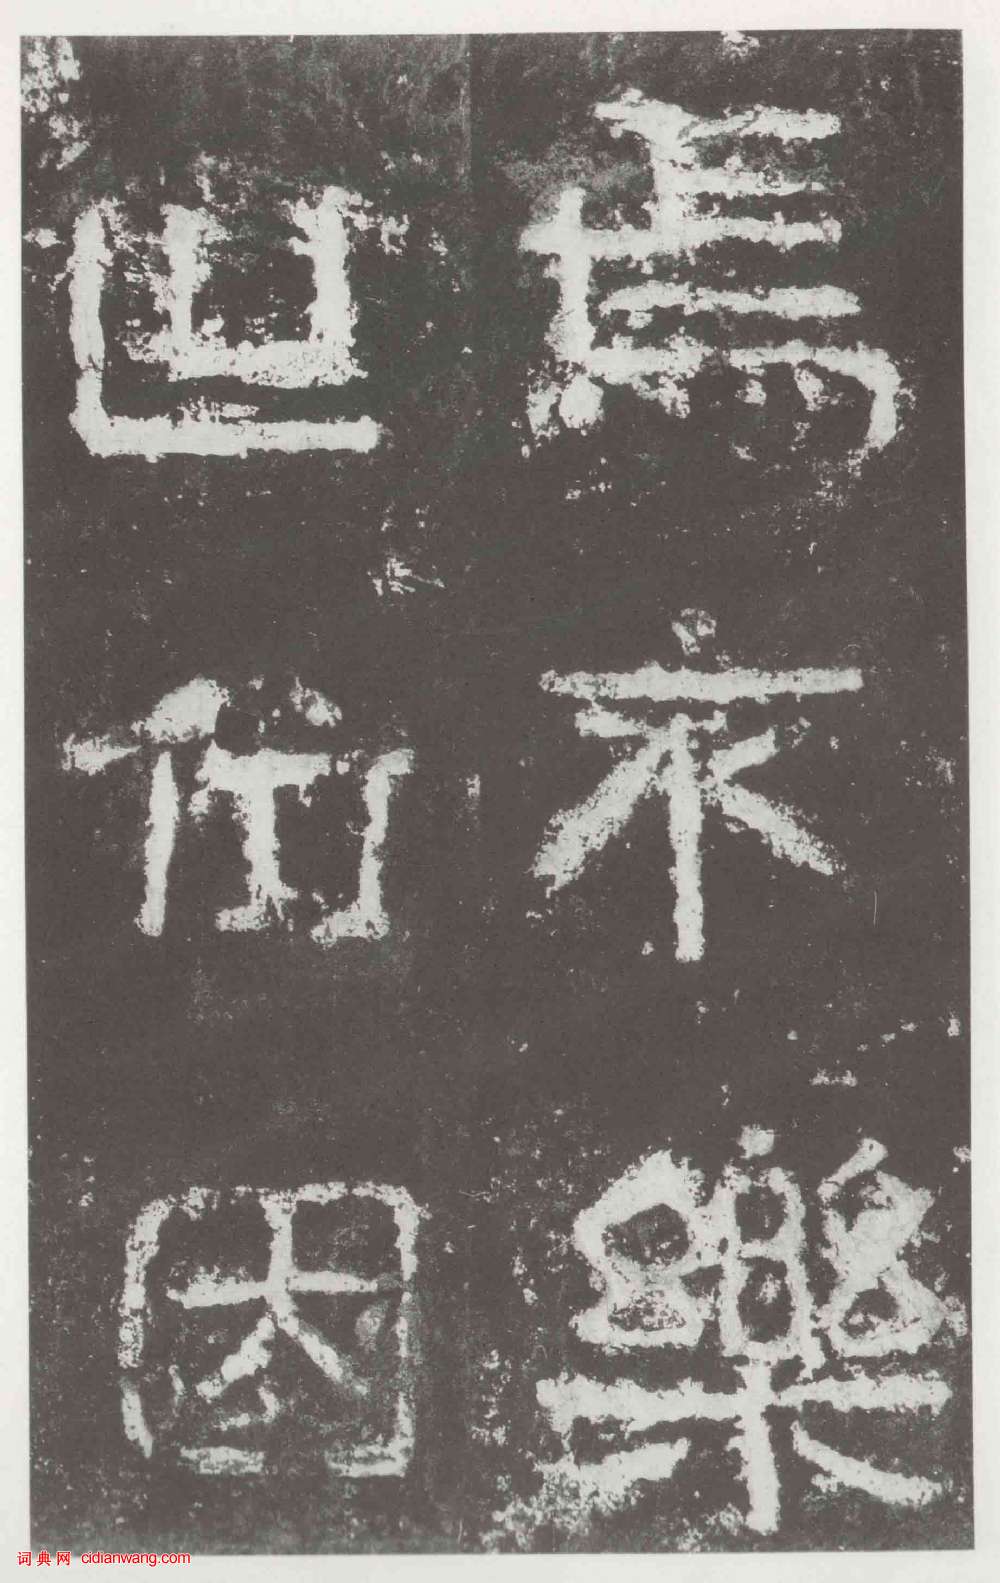 焉不樂
世位因
词典网 cidianwang.com